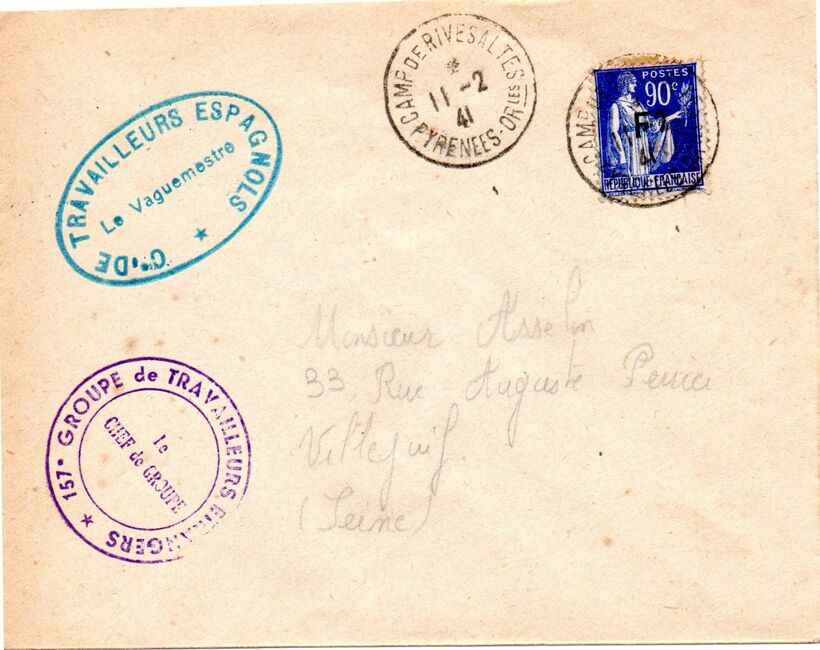 Cie DE TRAVAILLEURS ESPAGNOLS
Le Vaguemestre
CAMP DE RIVESALTES
11-2
41
PYRENEES-ORles
POSTES
90c
F
REPUBLIQUE FRANÇAISE
CAMP
41
157e GROUPE de TRAVAILLEURS ETRANGERS
le
CHEF de GROUPE
Monsieur Asselin
33 Rue Auguste
Villejuif
(Seine)